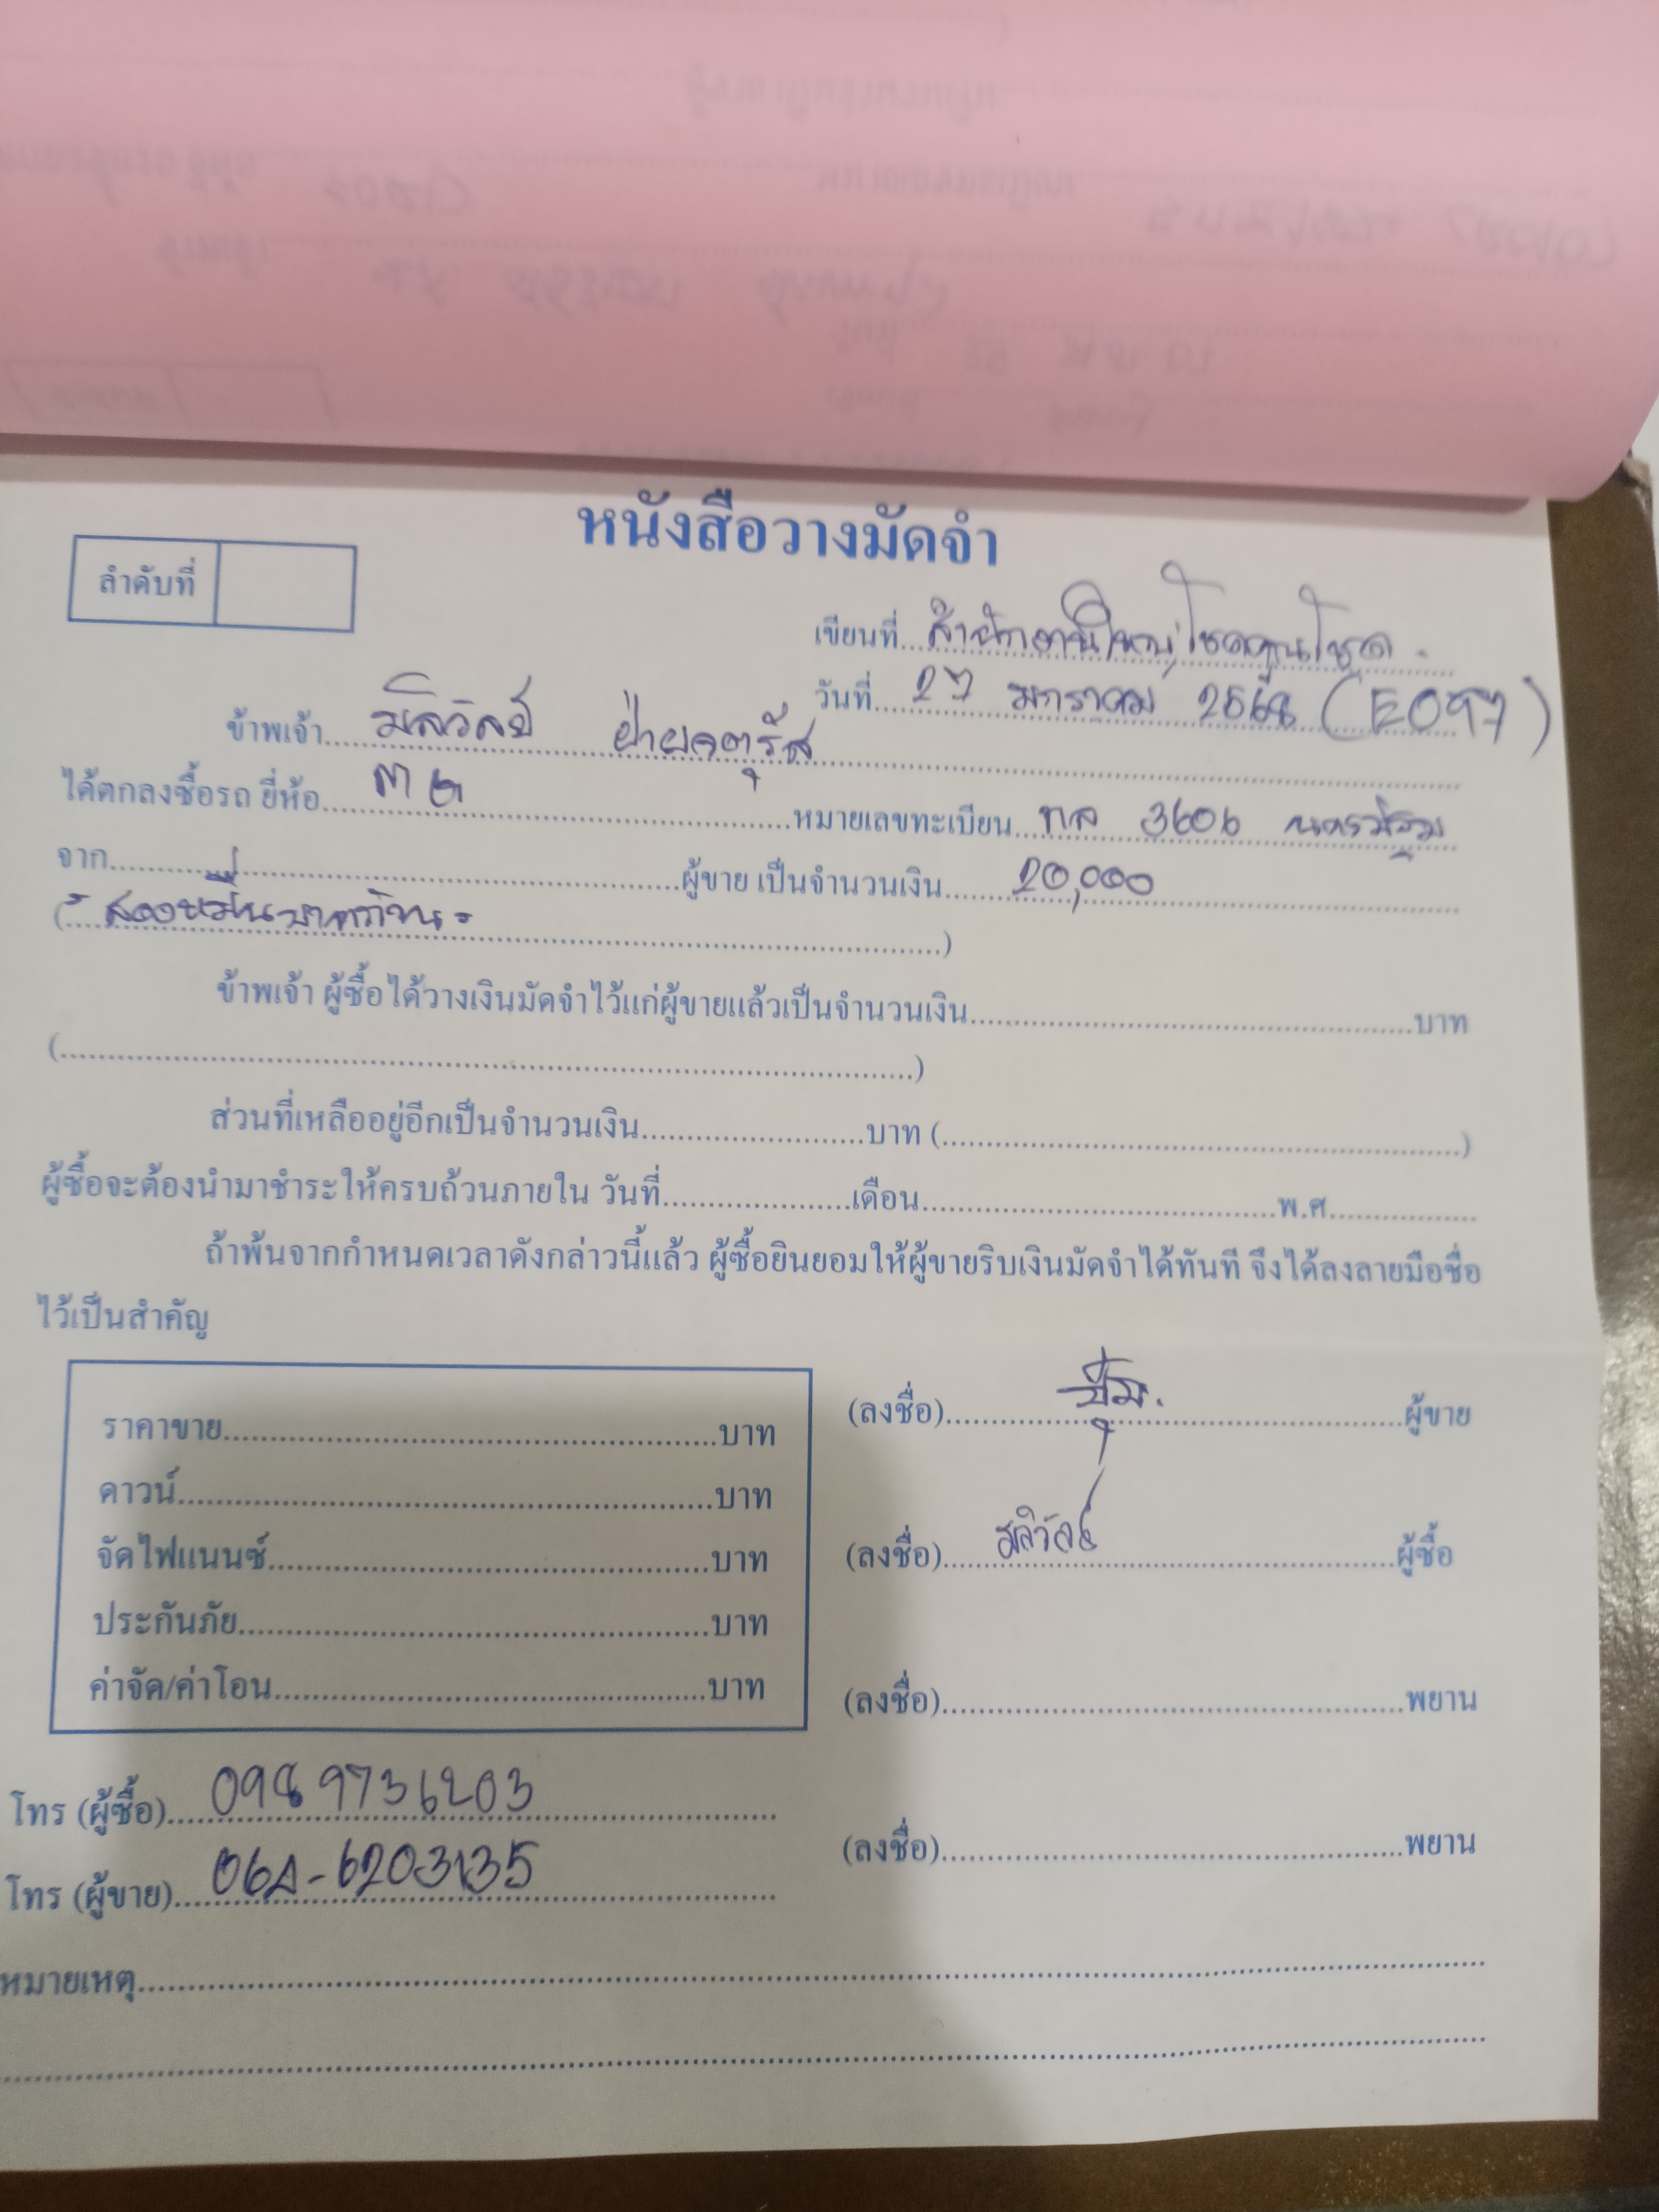 หนังสือวางมัดจำ
ลำดับที่
เขียนที่ สำนักงานใหญ่โชคคูณโชค
วันที่ 27 มกราคม 2568 (E097)
ข้าพเจ้า มลิวัลย์
ได้ตกลงซื้อรถ ยี่ห้อ MG หมายเลขทะเบียน 3606 นครปฐม
จาก ผู้ขาย เป็นจำนวนเงิน 20,000
(= สองหมื่นบาทถ้วน = )
ข้าพเจ้า ผู้ซื้อได้วางเงินมัดจำไว้แก่ผู้ขายแล้วเป็นจำนวนเงิน บาท
( )
ส่วนที่เหลืออยู่อีกเป็นจำนวนเงิน บาท ( )
ผู้ซื้อจะต้องนำมาชำระให้ครบถ้วนภายใน วันที่ เดือน พ.ศ.
ถ้าพ้นจากกำหนดเวลาดังกล่าวนี้แล้ว ผู้ซื้อยินยอมให้ผู้ขายริบเงินมัดจำได้ทันที จึงได้ลงลายมือชื่อ
ไว้เป็นสำคัญ
ราคาขาย บาท
ดาวน์ บาท
จัดไฟแนนซ์ บาท
ประกันภัย บาท
ค่าจัด/ค่าโอน บาท
(ลงชื่อ) ผู้ขาย
(ลงชื่อ) มลิวัลย์ ผู้ซื้อ
(ลงชื่อ) พยาน
(ลงชื่อ) พยาน
โทร (ผู้ซื้อ) 0989736203
โทร (ผู้ขาย)
หมายเหตุ